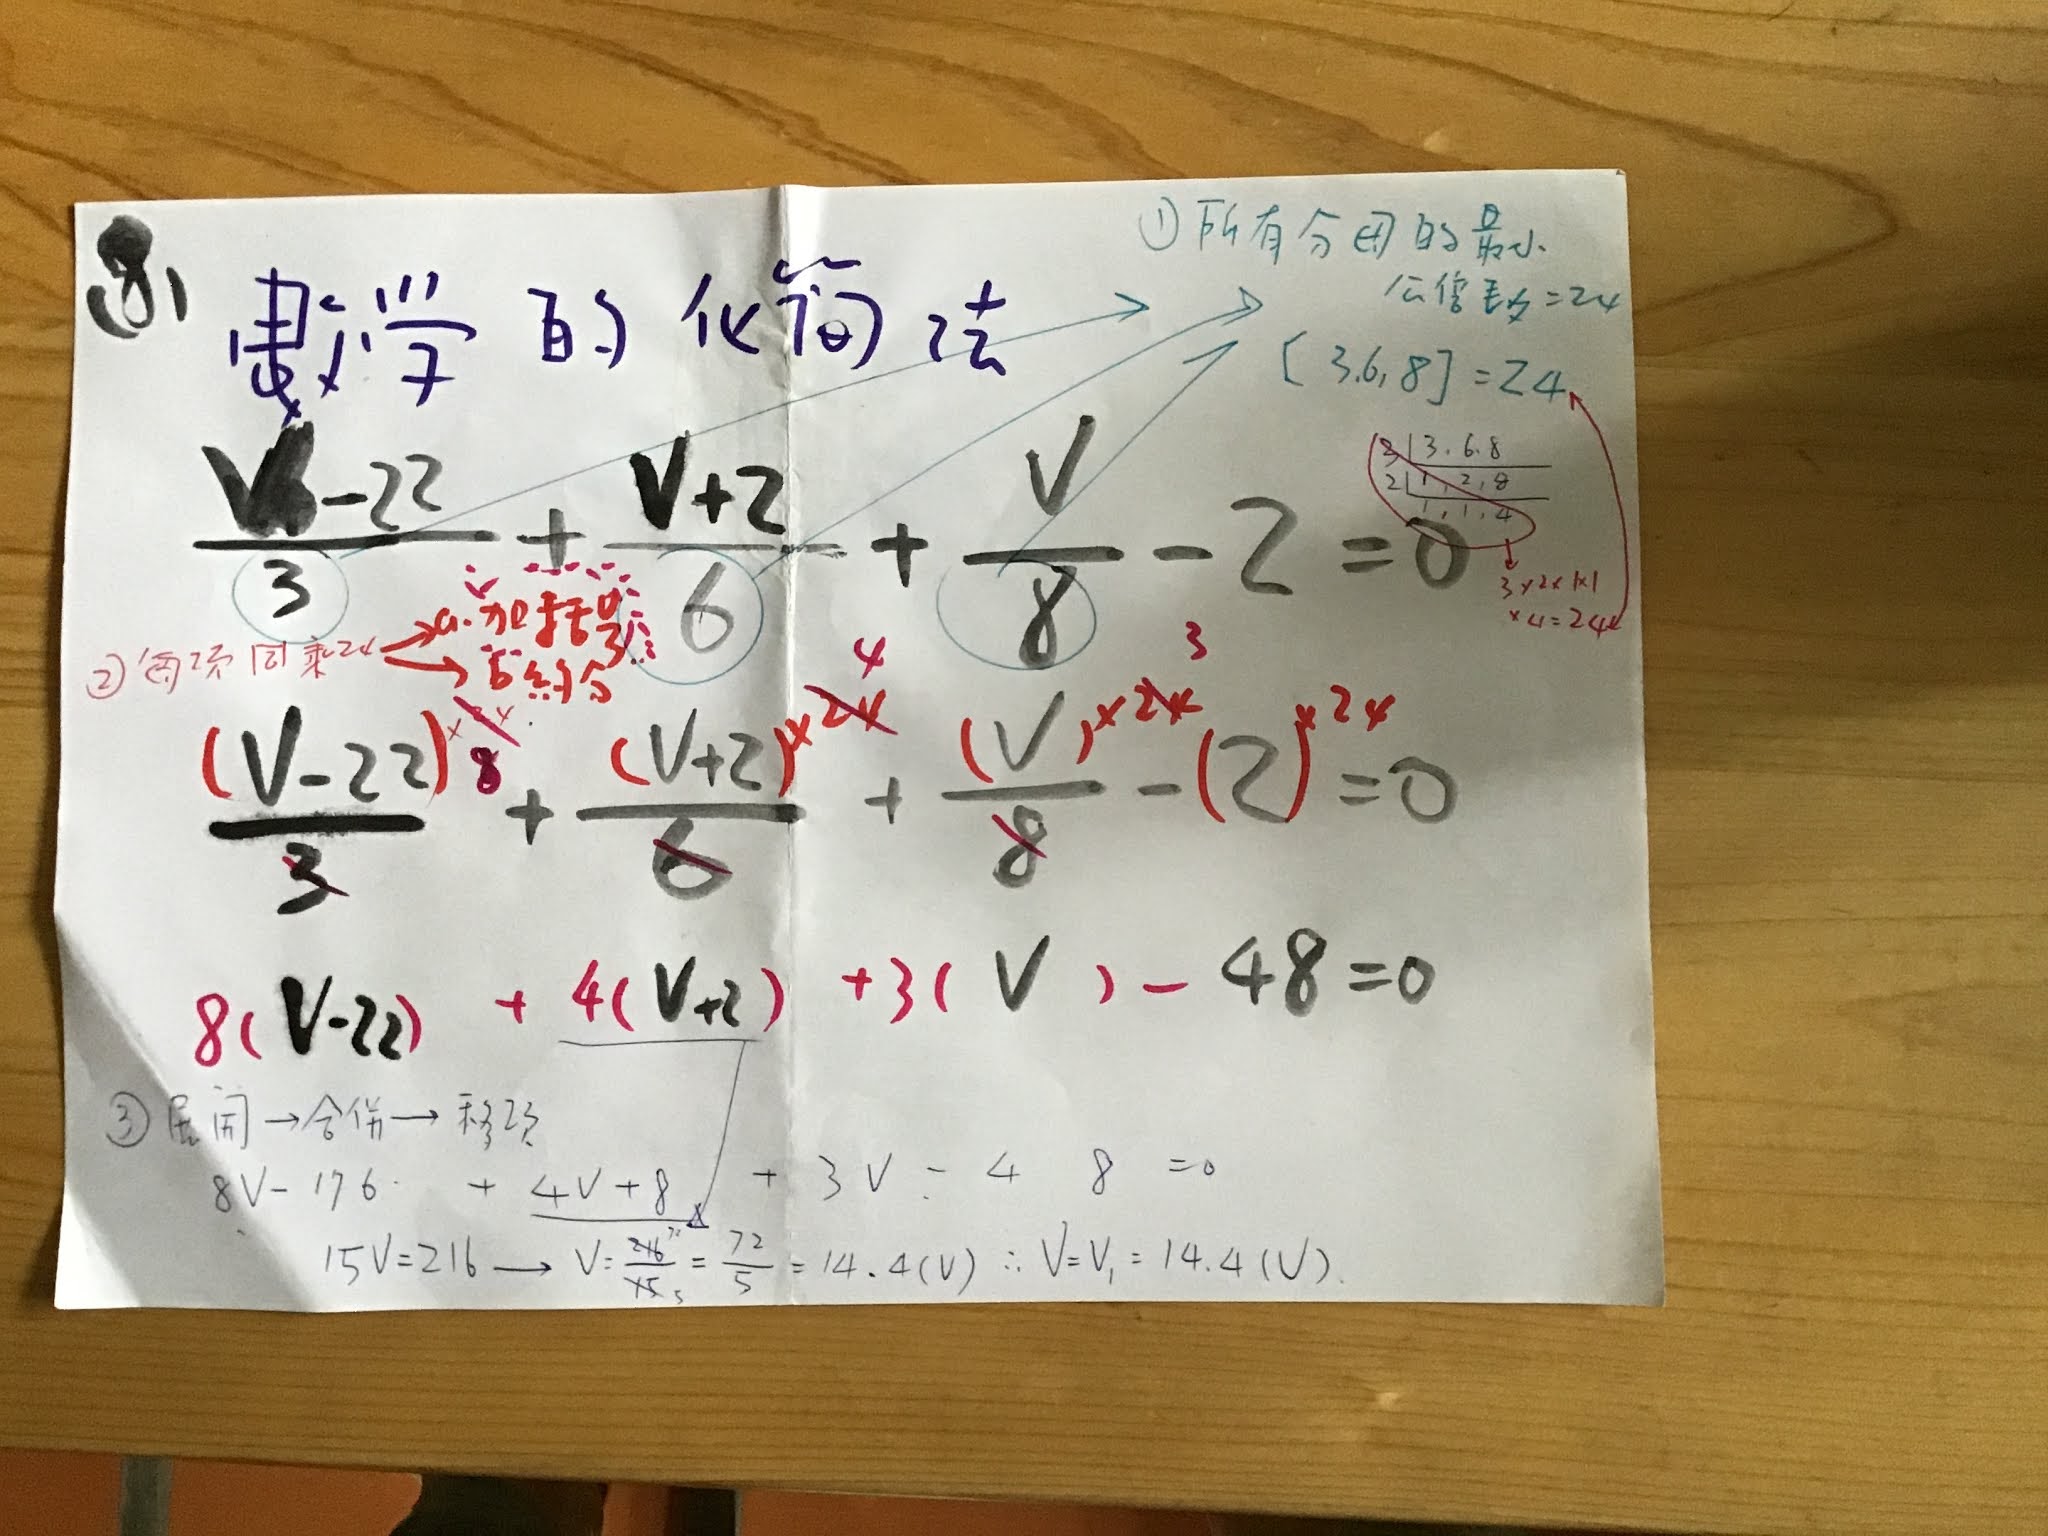 8、
數學的化簡法
① 所有分母的最小
公倍數=24
[3.6,8]=24
3 | 3.6.8
2 | 1,2,8
1,1,4
3×2×1×1
×4=24
V-22/3 + V+2/6 + V/8 - 2 = 0
② 每項同乘24
a.加括号
b.約分
(V-22)×24 8/3 + (V+2)×24 4/6 + (V)×24 3/8 - (2)×24 = 0
8(V-22) + 4(V+2) + 3(V) - 48 = 0
③ 展開→合併→移項
8V-176 + 4V+8 + 3V - 48 =0
15V=216 → V=216 72/15 5=72/5=14.4(V) ∴V=V₁=14.4(V).